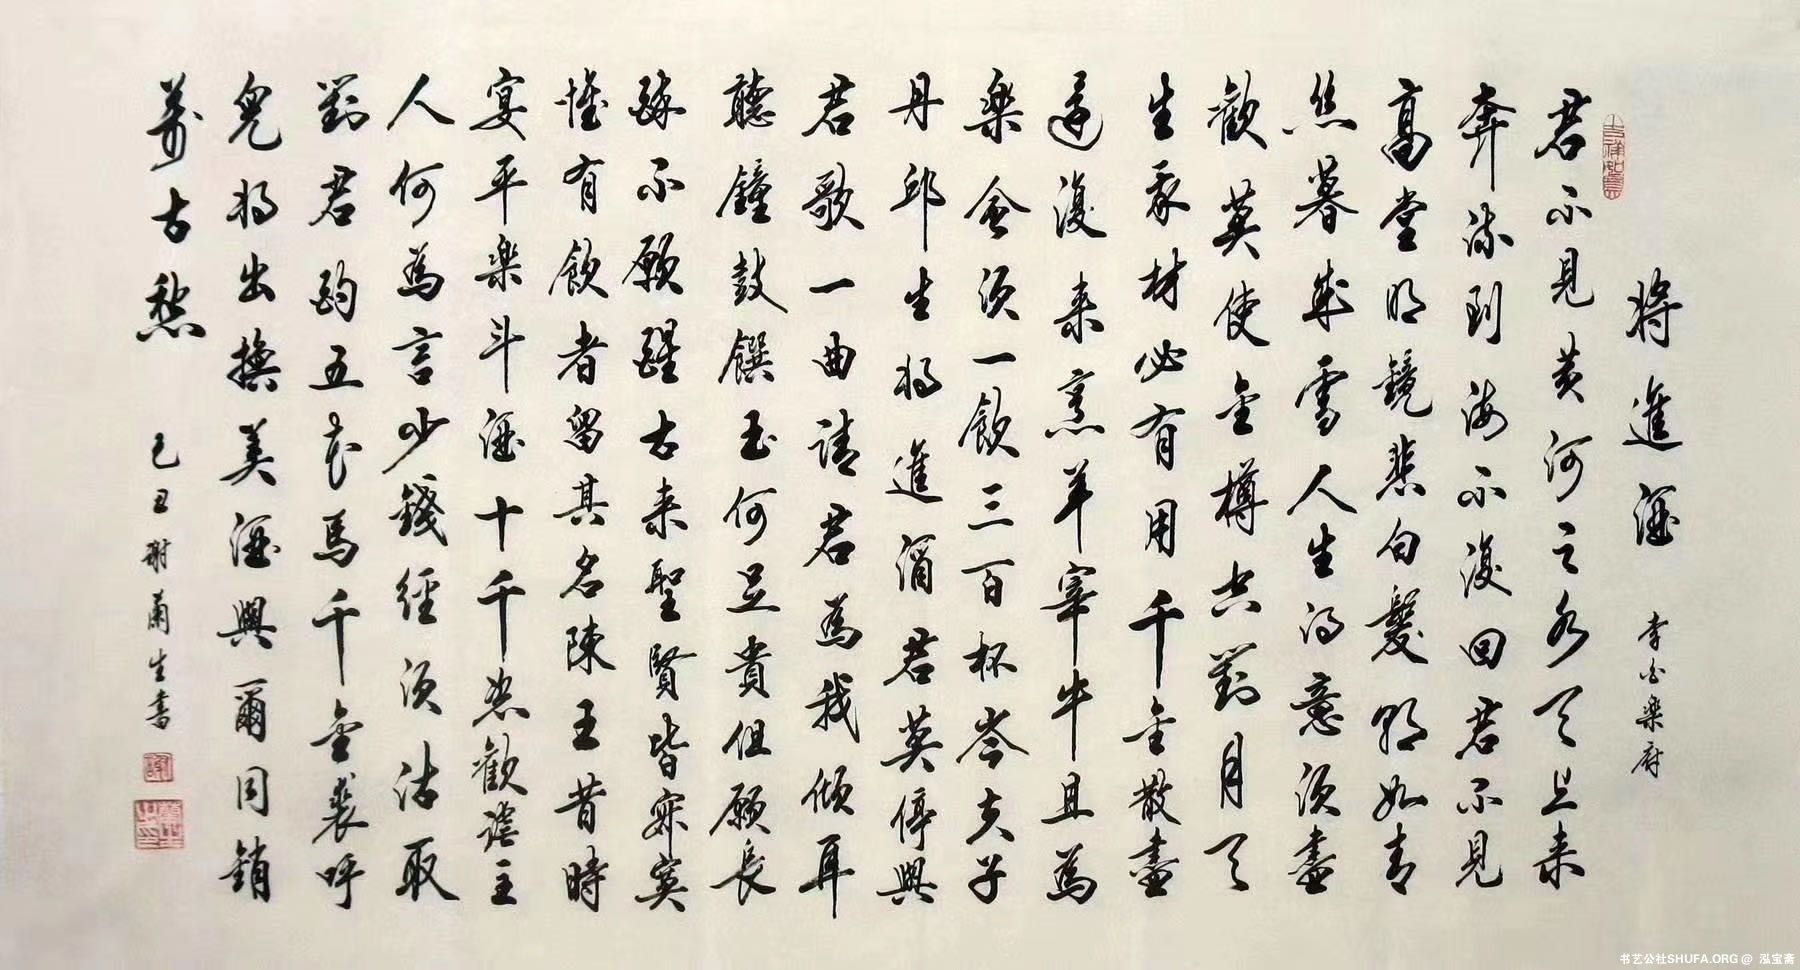 將進酒 李白樂府
君不見黃河之水天上来
奔流到海不復回君不見
高堂明鏡悲白髮朝如青
丝暮成雪人生得意須盡
歡莫使金樽空對月天
生我材必有用千金散盡
還復来烹羊宰牛且為
樂會須一飲三百杯岑夫子
丹邱生將進酒君莫停與
君歌一曲請君為我傾耳
聽鐘鼓饌玉何足貴但願長
醉不願醒古来聖賢皆寂寞
惟有飲者留其名陳王昔時
宴平樂斗酒十千恣歡謔主
人何為言少錢徑須沽取
對君酌五花馬千金裘呼
兒將出換美酒與爾同銷
萬古愁 己丑謝蘭生書
书艺公社SHUFA.ORG @ 泓宝斋